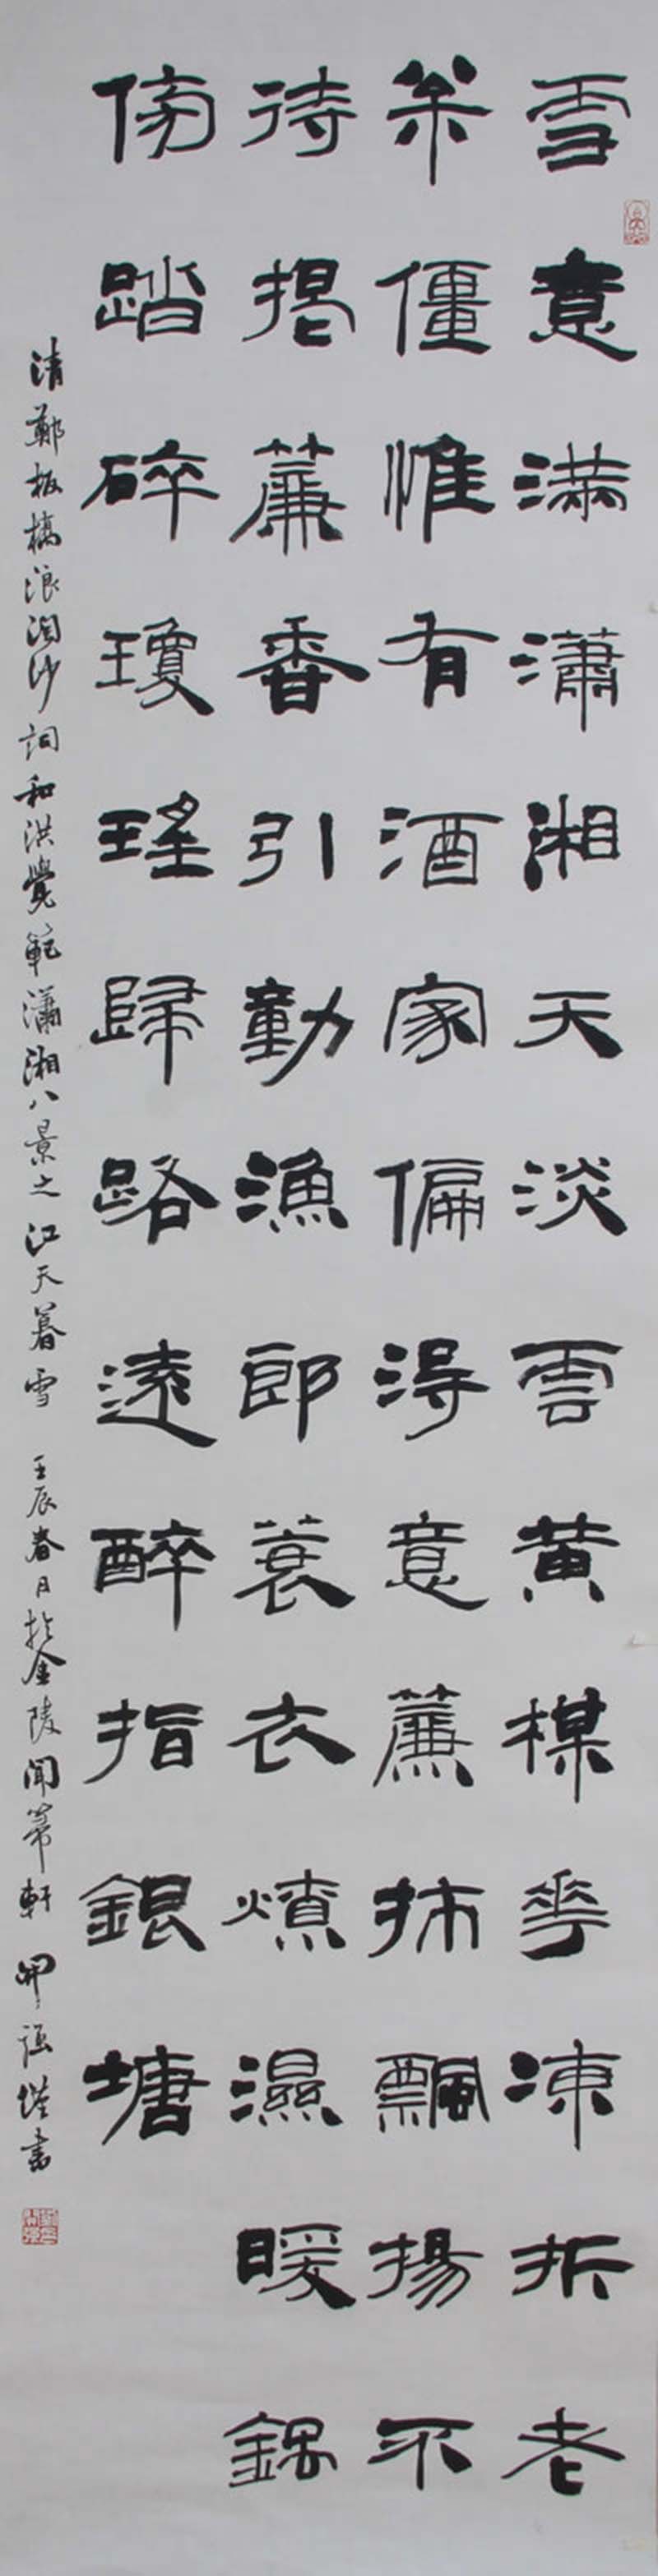 雪意滿瀟湘天淡雲黃楳花凍折老
枀僵惟有酒家偏得意簾旆飄揚不
待揭簾香引動漁郎蓑衣燎濕暖鍋
傍踏碎瓊瑤歸路遠醉指銀塘
清鄭板橋浪淘沙詞和洪覺範瀟湘八景之江天暮雪 壬辰春月於金陵聞軒 書